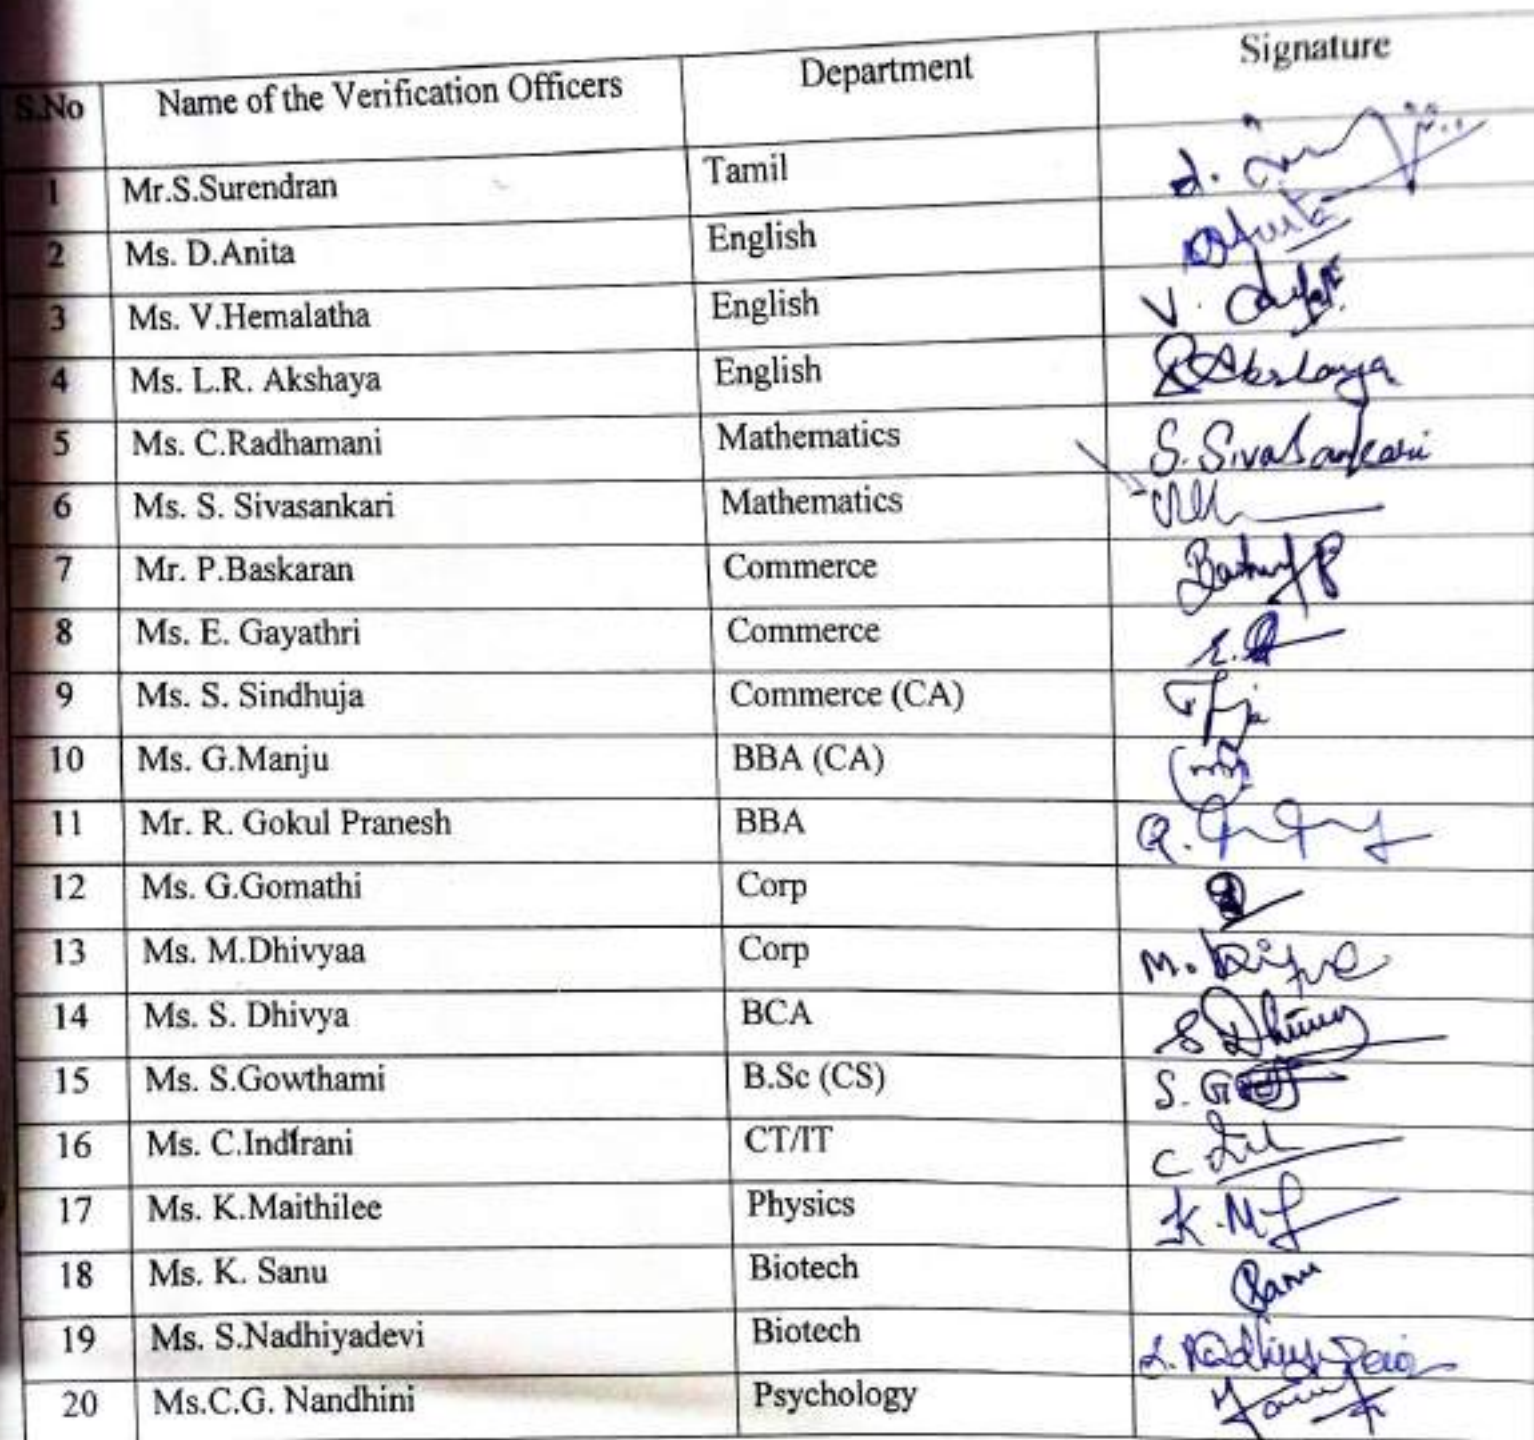 S.No Name of the Verification Officers Department Signature
1 Mr.S.Surendran Tamil
2 Ms. D.Anita English
3 Ms. V.Hemalatha English V.
4 Ms. L.R. Akshaya English Akshaya
5 Ms. C.Radhamani Mathematics S. Sivasankari
6 Ms. S. Sivasankari Mathematics
7 Mr. P.Baskaran Commerce
8 Ms. E. Gayathri Commerce E.
9 Ms. S. Sindhuja Commerce (CA)
10 Ms. G.Manju BBA (CA)
11 Mr. R. Gokul Pranesh BBA
12 Ms. G.Gomathi Corp
13 Ms. M.Dhivyaa Corp M.
14 Ms. S. Dhivya BCA
15 Ms. S.Gowthami B.Sc (CS) S.
16 Ms. C.Indirani CT/IT C
17 Ms. K.Maithilee Physics K.M
18 Ms. K. Sanu Biotech Sanu
19 Ms. S.Nadhiyadevi Biotech
20 Ms.C.G. Nandhini Psychology